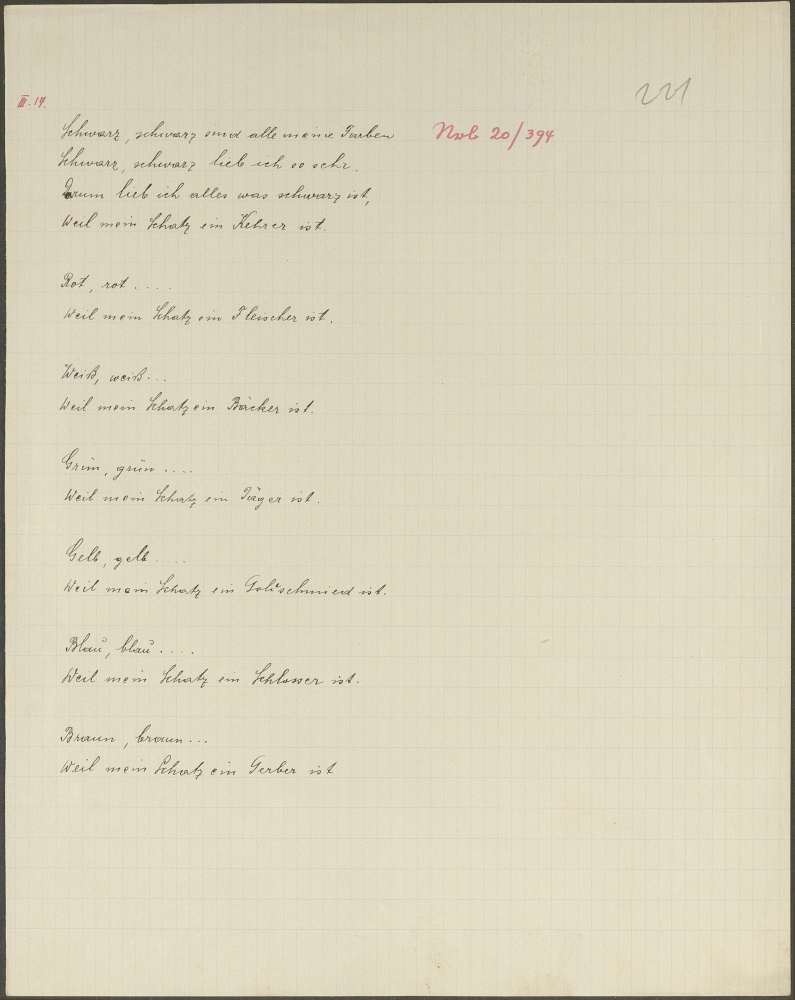 221
III.14.
Schwarz, schwarz sind alle meine Farben Nsrb 20/394
Schwarz, schwarz lieb ich so sehr.
Darum lieb ich alles was schwarz ist,
Weil mein Schatz ein Kehrer ist.
Rot, rot ....
Weil mein Schatz ein Fleischer ist.
Weiß, weiß...
Weil mein Schatz ein Bäcker ist.
Grün, grün ....
Weil mein Schatz ein Jäger ist.
Gelb, gelb ....
Weil mein Schatz ein Goldschmied ist.
Blau, blau ....
Weil mein Schatz ein Schlosser ist.
Braun, braun...
Weil mein Schatz ein Gerber ist